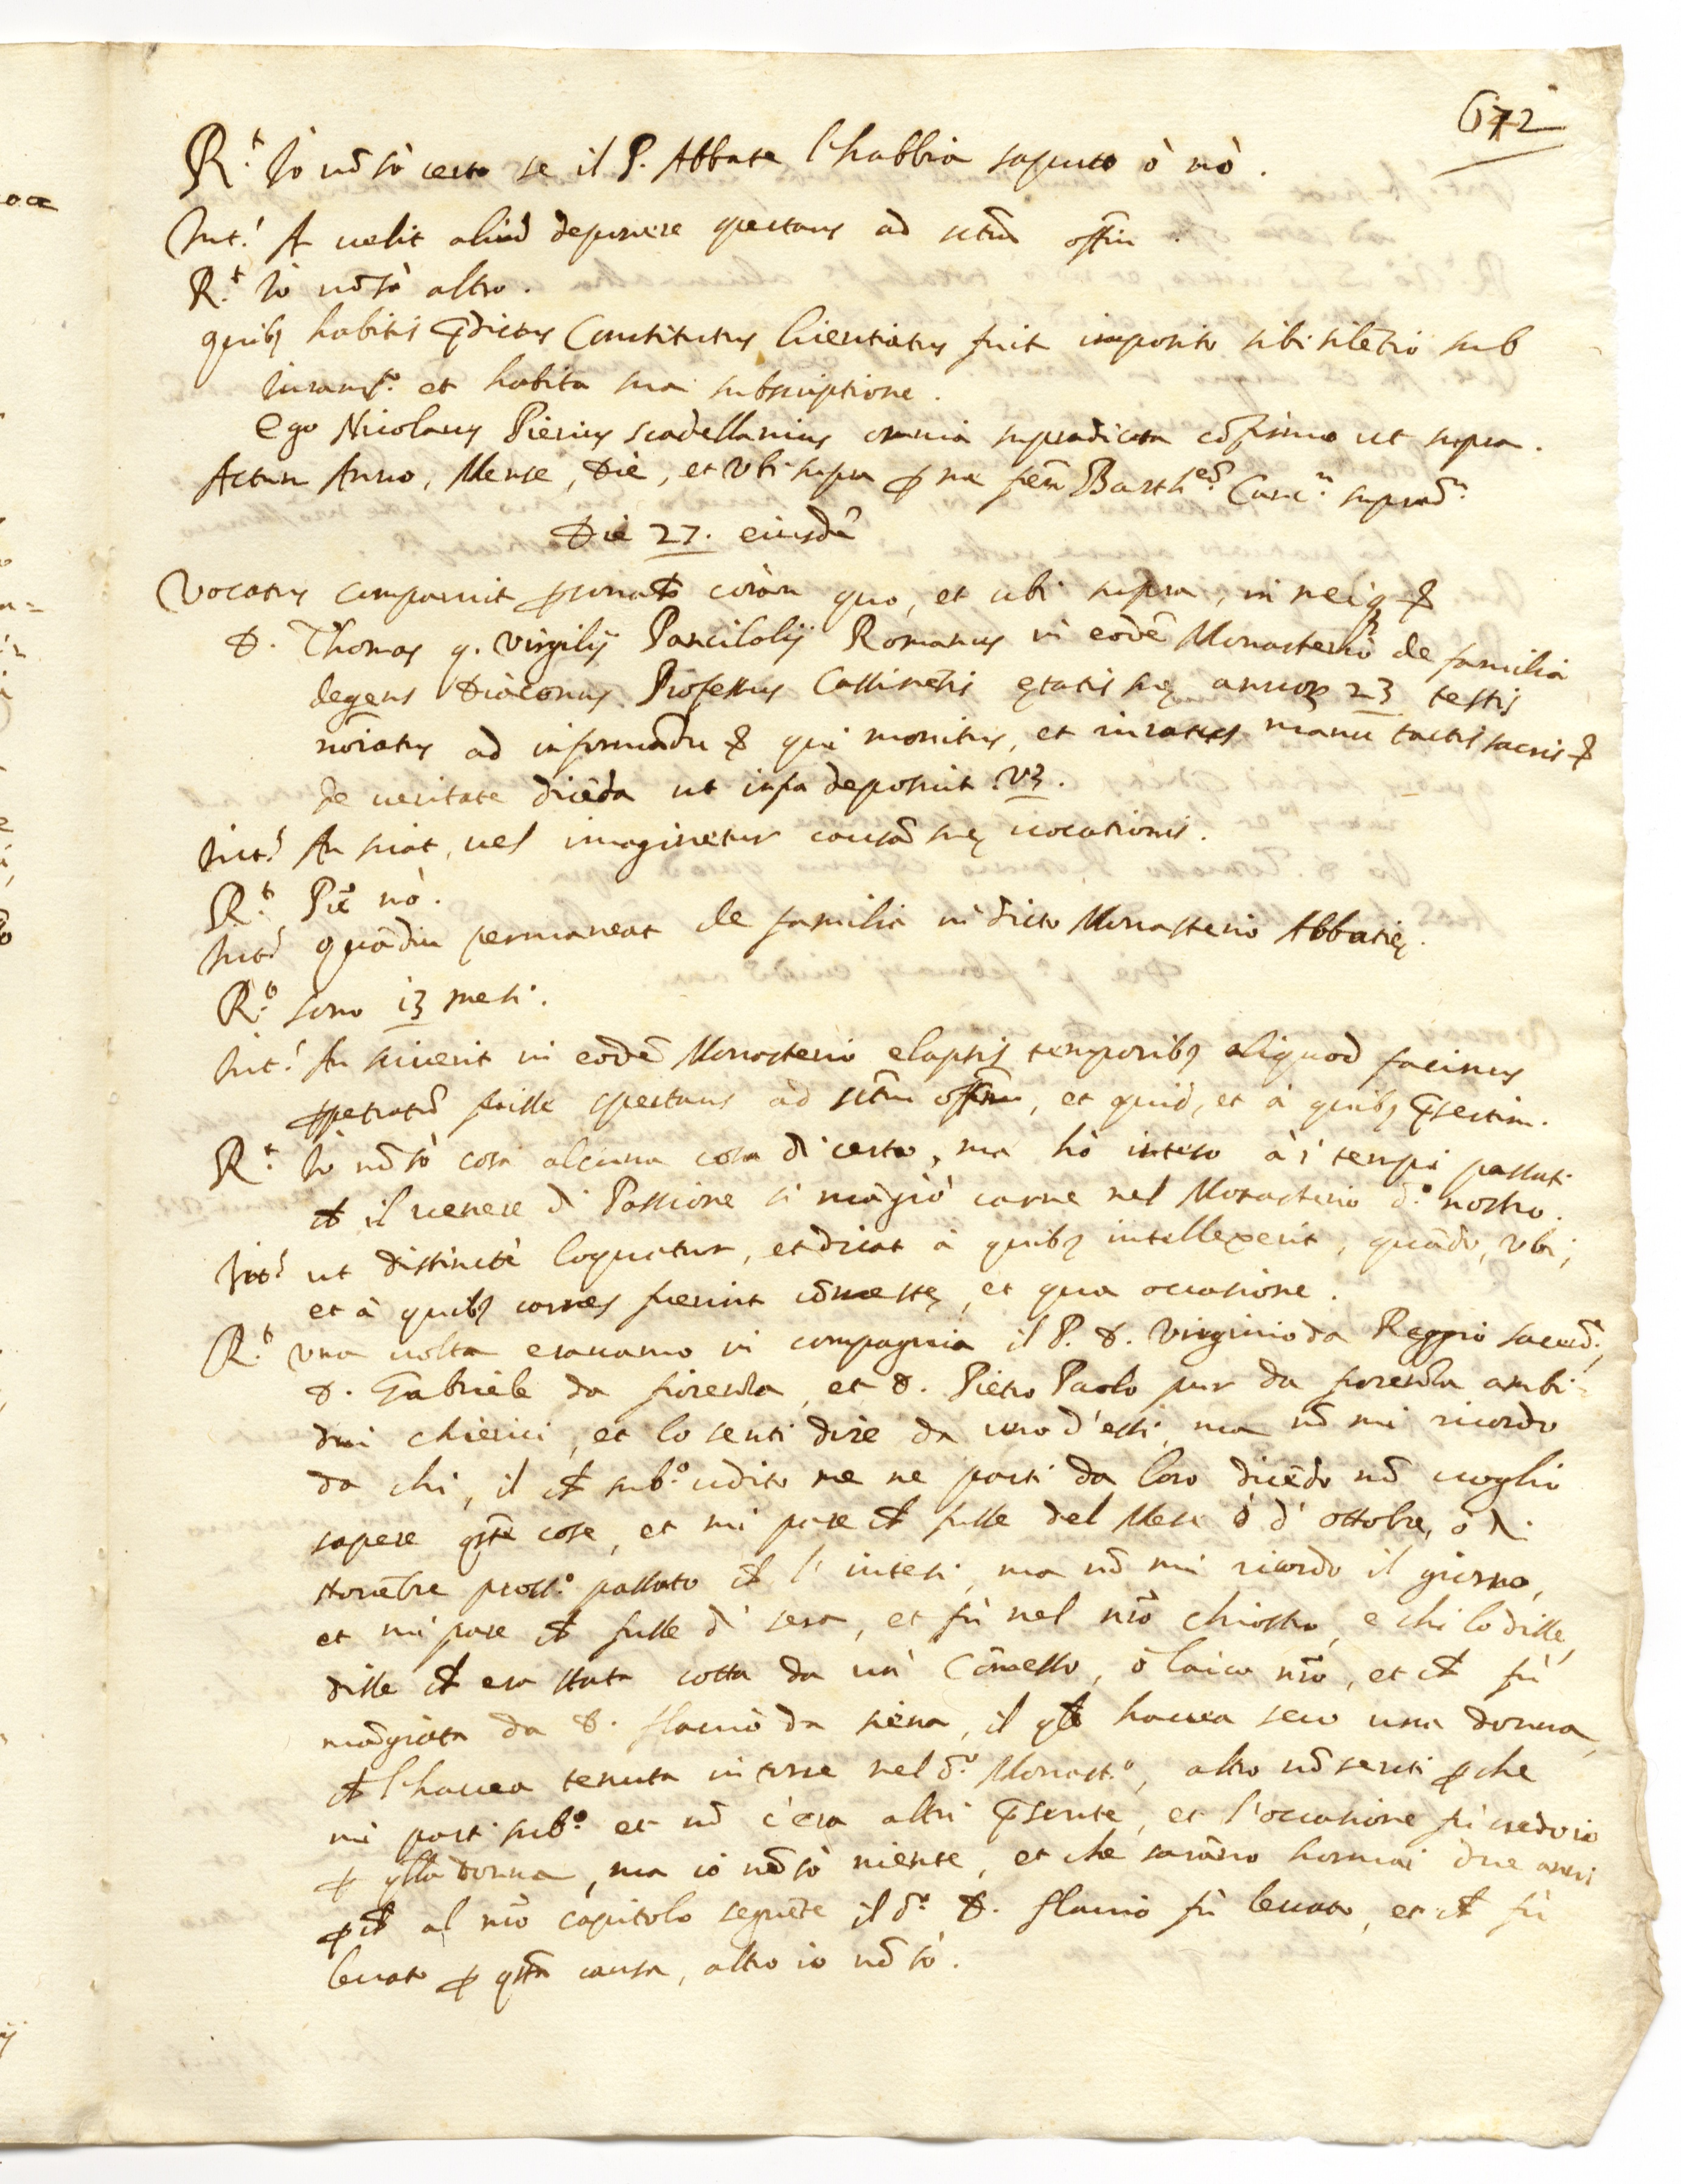 672
R.t Io nõ sò certo se il P. Abbate l'habbia saputo ò nò.
Int.s An uelit aliud deponere spectans ad sctũ offm̃.
R.t Io nõ sò altro.
quibȝ habitis p̃dictus Constitutus licentiatus fuit imposito sibi silẽtio sub
iuram.to et habita sua subscriptione.
Ego Nicolaus Pierius scadellarius omnia supradicta cõfirmo ut supra.
Actum Anno, Mense, Die, et Vbi supra ꝑ me Barth.eũ Canc.m suprad.m
Die 27. eiusdẽ
Vocatus comparuit ꝑsonalr̃ coram quo, et ubi supra, in meiq. &
D. Thomas q. Virgilij Panciloly Romanus in eodẽ Monasterio de familia
degens Diaconus Professus Cassinẽsis ętatis suę annorꝫ 23 testis
noĩatus ad informãdũ & qui monitus, et iuratus manu tactis sacris &
de ueritate dicẽda ut infra deposuit Vȝ.
Int.s An sciat, uel imaginetur causã suę uocationis.
R.t P.re nò.
Int.s quãdiu permaneat de familia in dicto Monasterio Abbatię.
R.t sono i3 mesi.
Int.s An sciuerit in eodẽ Monasterio elapsis temporibȝ aliquod facinus
ꝑpetratũ fuisse spectans ad sctũ offm̃, et quid, et à quibȝ p̃sertim.
R.t Io nõ sò cosa alcuna cosa di certo, ma hò inteso à i tempi passati
ch̃ il uenere di Passione si mãgiò carne nel Monasterio d.o nostro.
Int.s ut distinctè loquatur, et dicat à quibȝ intellexerit, quãdo, Vbi,
et à quibȝ carnes fuerint cõmestę, et qua occasione.
R.t vna uolta erauamo in compagnia il P. D. Virginio da Reggio sacerd.e,
D. Gabriele da fiorẽzola, et D. Pietro Paolo pur da fiorẽzola ambi-
dui chierici, et lo senti dire da uno d'essi, ma nõ mi ricordo
da chi, il ch̃ sub.o udito me ne parti da loro dicẽdo nõ uoglio
sapere q̃ste cose, et mi pare ch̃ fusse del Mese ò d'ottobre, ò di
Nouẽbre pross.o passato ch̃ l'intesi, ma nõ mi ricordo il giorno,
et mi pare ch̃ fusse di sera, et fù nel nr̃o chiostro, e chi lo disse,
disse ch̃ era stata cotta da un' Cõmesso, ò laico nr̃o, et ch̃ fù
mãgiata da D. Flauio da siena, il qle hauea seco una donna,
ch̃ l'hauea tenuta in torre nel d.o Monast.o, altro nõ senti ꝑche
mi parti sub.o et nõ c'era altri p̃sente, et l'occasione fù credo io
ꝑ qlla donna, ma io nõ sò niente, et che sarãno hormai due anni
ꝑch̃ al nr̃o capitolo seguẽte il d.o D. Flauio fù leuato, et ch̃ fù
leuato ꝑ q̃sta causa, altro io nõ sò.